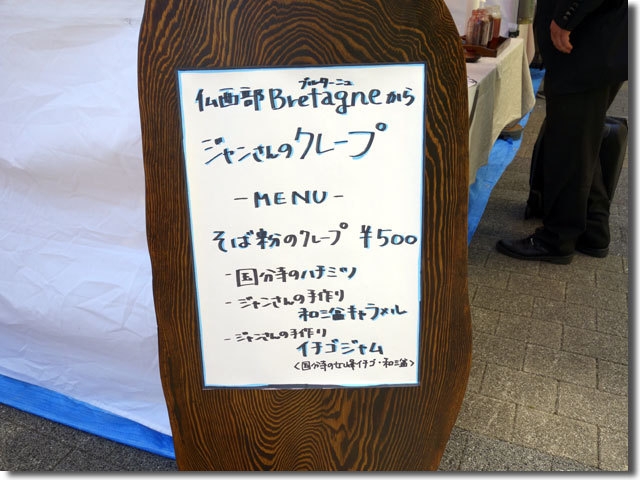 ブルターニュ
仏西部Bretagneから
ジャンさんのクレープ
-MENU-
そば粉のクレープ ¥500
-国分寺のハチミツ
-ジャンさんの手作り
和三盆キャラメル
-ジャンさんの手作り
イチゴジャム
<国分寺の女峰イチゴ・和三盆>